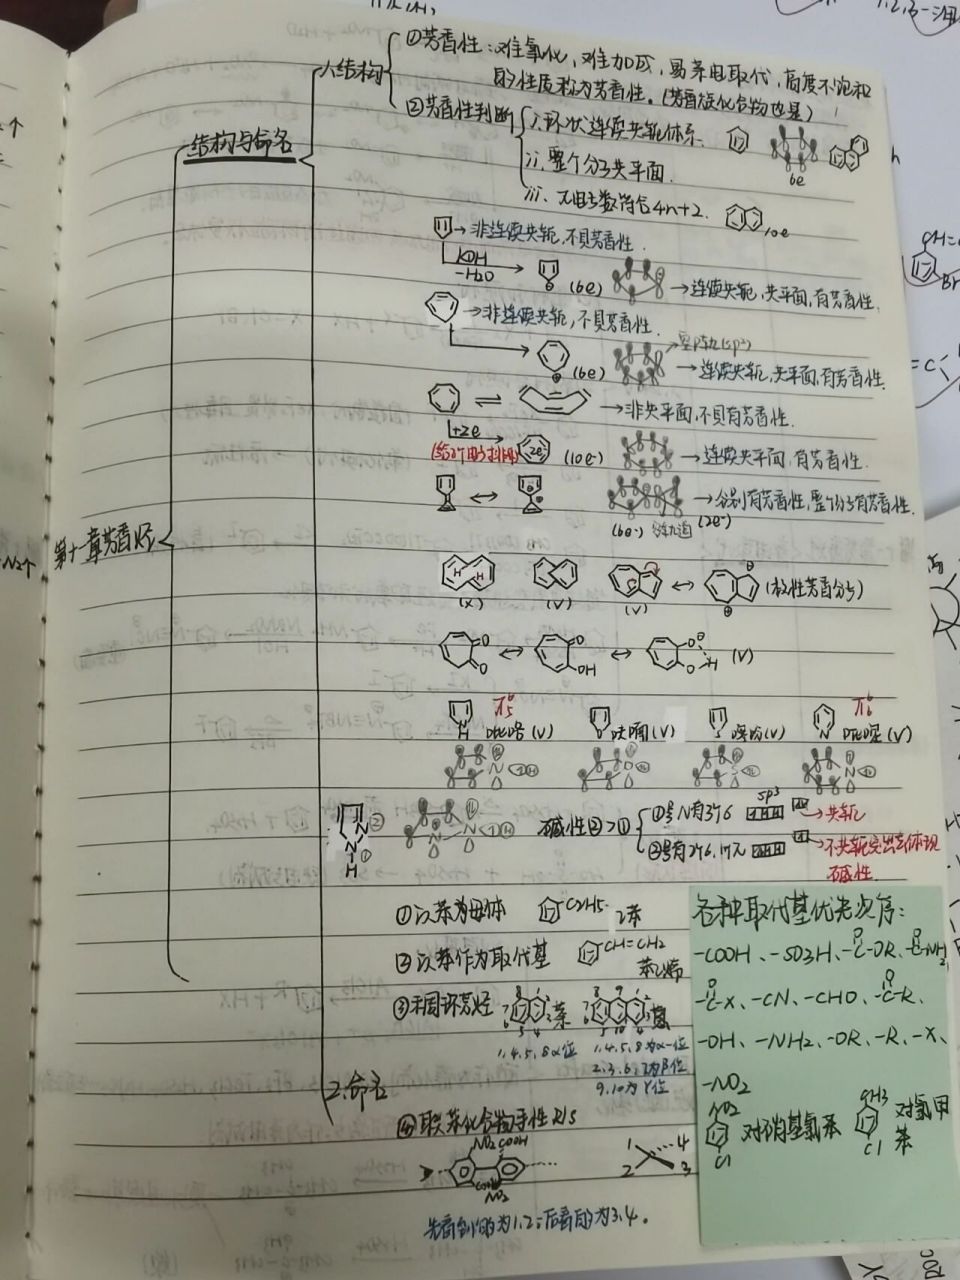 第十一章芳香烃
结构与命名
1.结构
①芳香性:难氧化,难加成,易亲电取代,高度不饱和
的性质称为芳香性。(芳香族化合物也是)
②芳香性判断
i.环状连续共轭体系.
6e
ii.整个分子共平面.
iii.π电子数符合4n+2.
10e
→非连续共轭,不具芳香性.
KOH
-H2O
(6e)
→连续共轭,共平面,有芳香性.
→非连续共轭,不具芳香性.
空p轨(sp²)
(6e)
→连续共轭,共平面,有芳香性.
→非共平面,不具有芳香性.
+2e
2e⁻
(10e⁻)
→连续共平面,有芳香性.
→分别有芳香性,整个分子有芳香性.
(6e⁻)
(2e⁻)
H H
(x)
(V)
(V)
(极性芳香分子)
O
O
O
OH
O
O
H
(V)
N
H
吡咯(V)
呋喃(V)
噻吩(V)
N
吡啶(V)
N
②
N
①
H
碱性②>①
①号N有3个6
sp³
→共轭
②号有3个6,1个π
→不共轭突出来体现
碱性.
①以苯为母体
C2H5
乙苯
②以苯作为取代基
CH=CH2
苯乙烯
③稠环芳烃
萘
蒽
1,4,5,8 α位
1,4,5,8为α-位
2,3,6,7为β位
9,10为γ位
2.命名
④联苯化合物手性R/S
NO2 COOH
COOH
NO2
1
2
4
3
先看到的为1,2;后看的为3,4。
各种取代基优先次序:
-COOH、-SO3H、-C-OR、-C-NH2、
-C-X、-CN、-CHO、-C-R、
-OH、-NH2、-OR、-R、-X、
-NO2
NO2
Cl
对硝基氯苯
CH3
Cl
对氯甲
苯